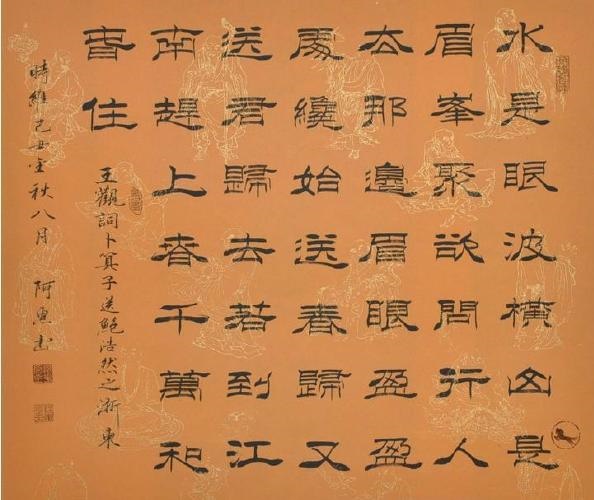 水是眼波橫山是
眉峯聚欲問行人
去那邊眉眼盈盈
處纔始送春歸又
送君歸去若到江
南趕上春千萬和
春住
王觀詞卜算子送鮑浩然之浙東
時維己丑金秋八月 阿惠书